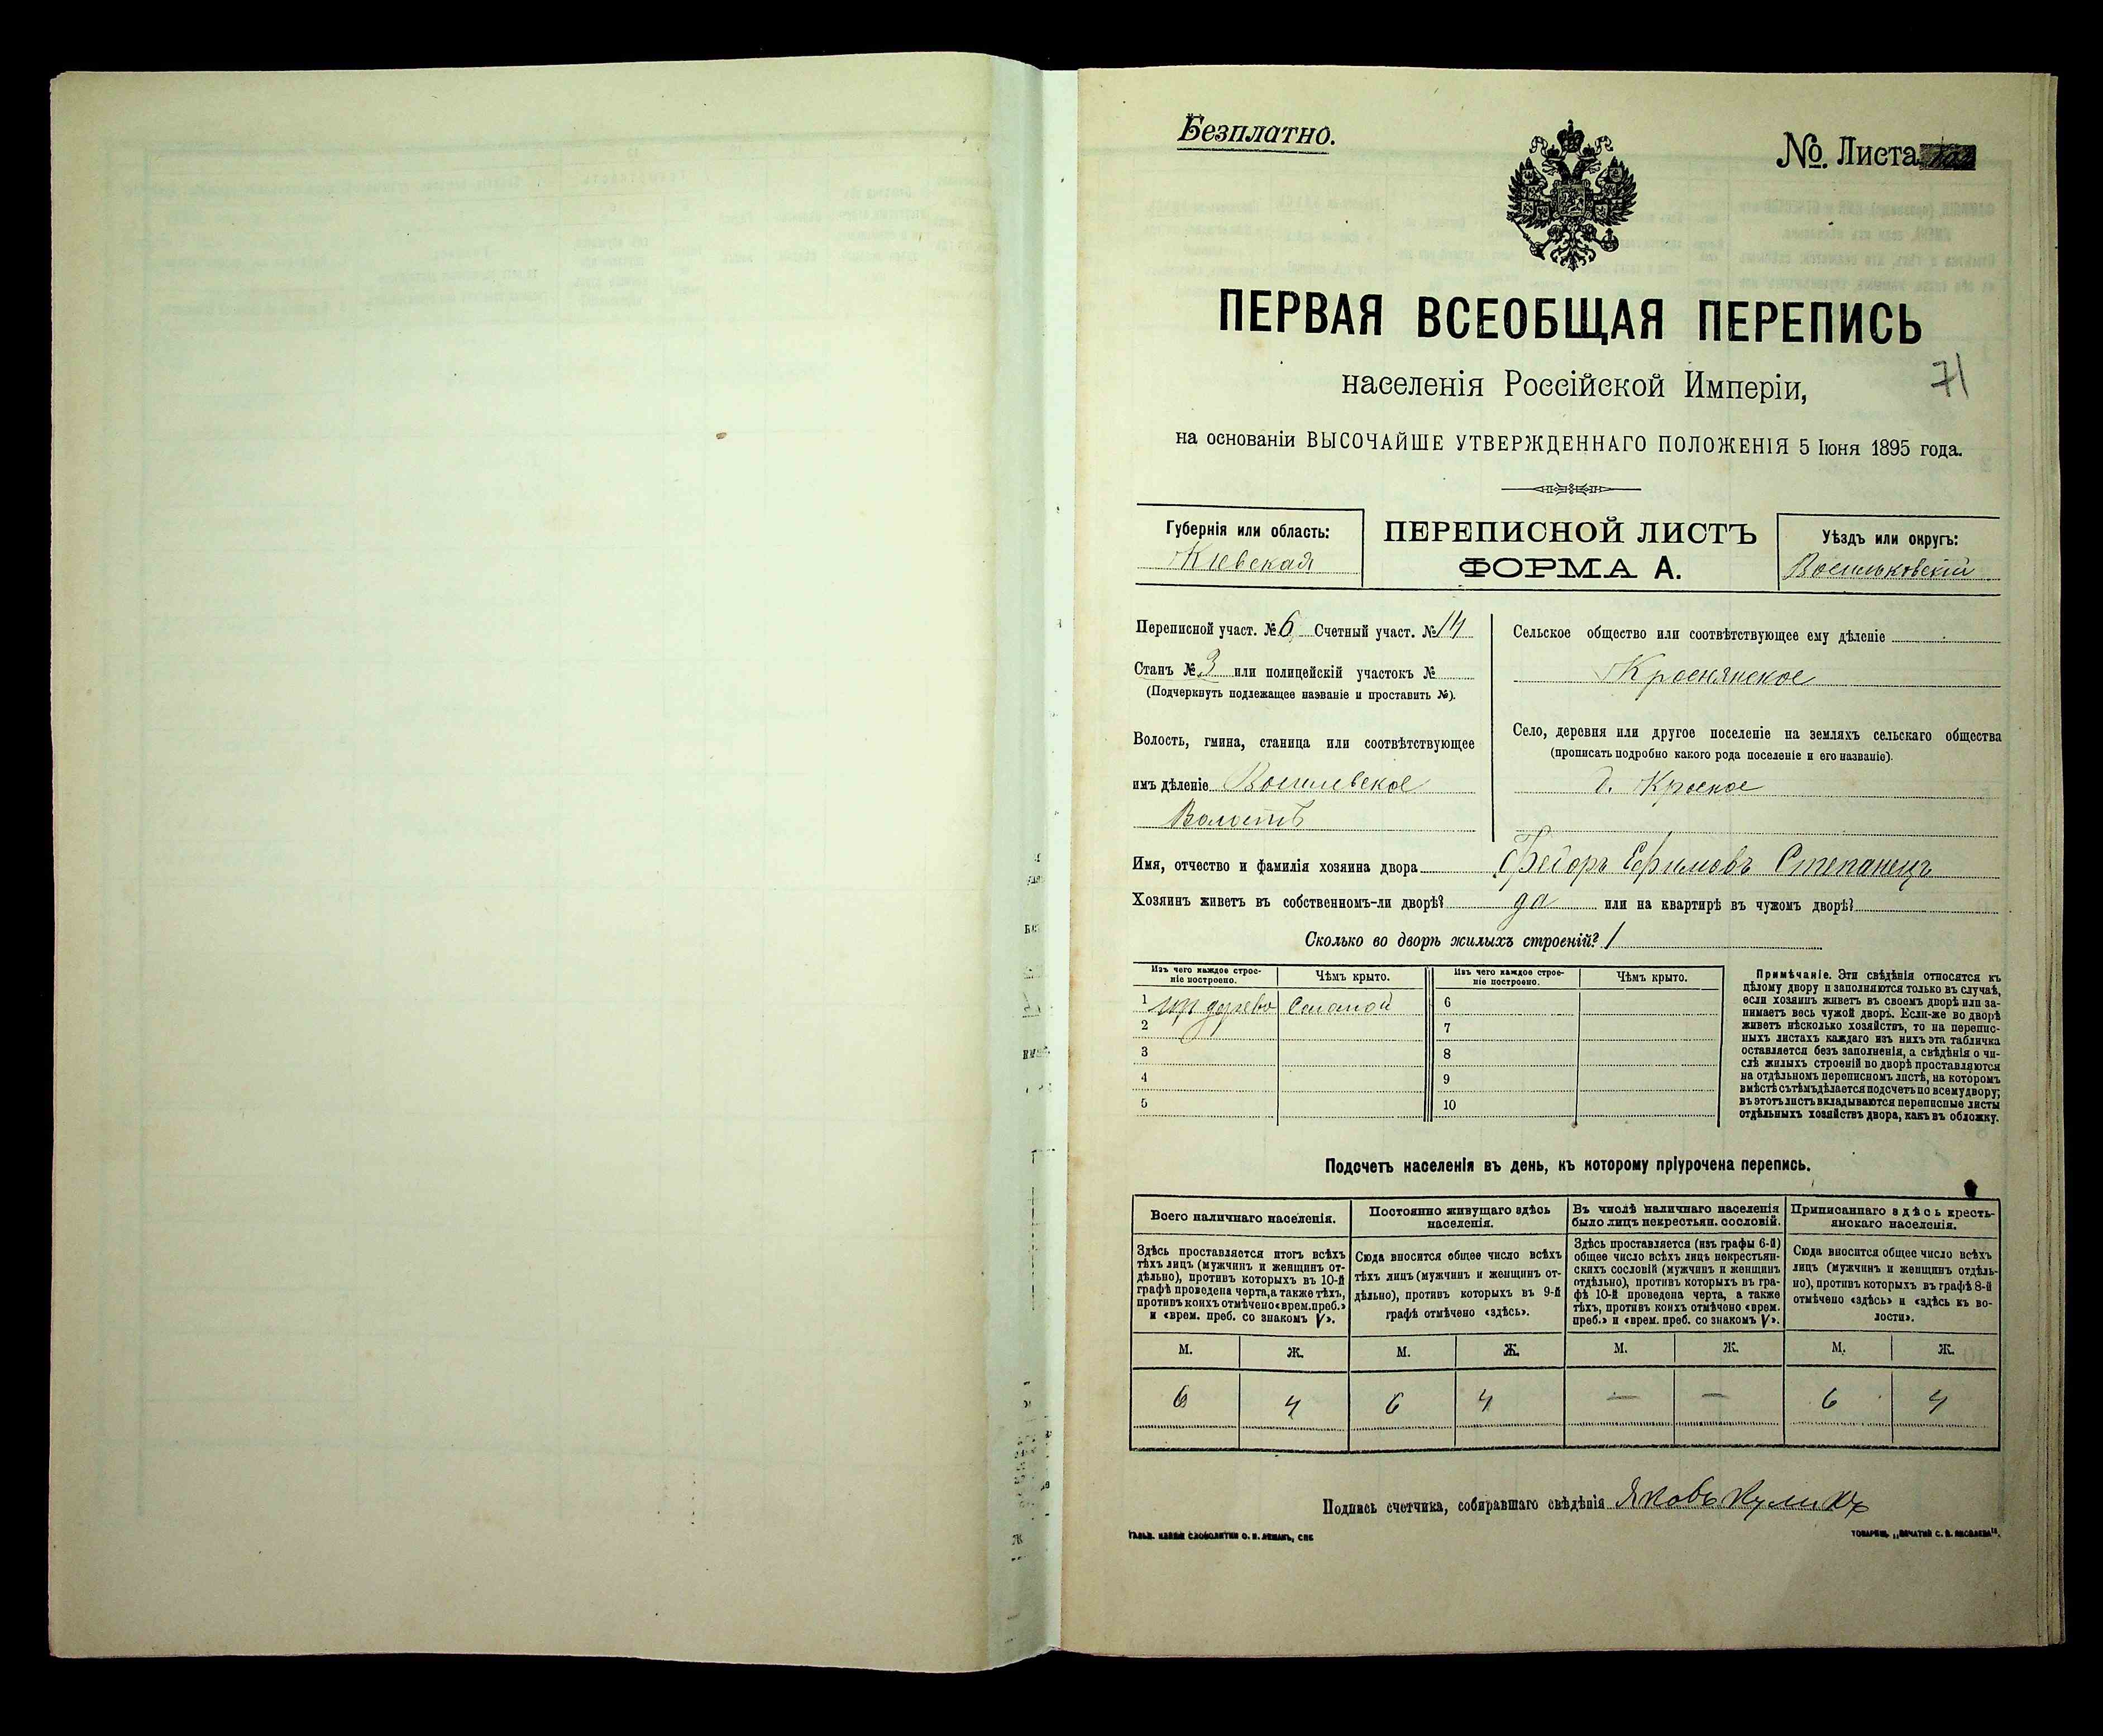 Безплатно.
№. Листа
ПЕРВАЯ ВСЕОБЩАЯ ПЕРЕПИСЬ
населенія Россійской Имперіи,
71
на основаніи ВЫСОЧАЙШЕ УТВЕРЖДЕННАГО ПОЛОЖЕНІЯ 5 Іюня 1895 года.
Губернія или область:
Кіевская
ПЕРЕПИСНОЙ ЛИСТЪ
ФОРМА А.
Уѣздъ или округъ:
Васильковскій
Переписной участ. № 6 Счетный участ. № 14
Станъ № 3 или полицейскій участокъ №
(Подчеркнуть подлежащее названіе и проставить №).
Волость, гмина, станица или соотвѣтствующее
имъ дѣленіе
Волость
Сельское общество или соотвѣтствующее ему дѣленіе
Краснянское
Село, деревня или другое поселеніе на земляхъ сельскаго общества
(прописать подробно какого рода поселеніе и его названіе).
д. Красное
Имя, отчество и фамилія хозяина двора Фейоръ Ефимовъ Степанецъ
Хозяинъ живетъ въ собственномъ-ли дворѣ? да или на квартирѣ въ чужомъ дворѣ?
Сколько во дворѣ жилыхъ строеній? 1
Изъ чего каждое строе-
ніе построено.
Чѣмъ крыто.
Изъ чего каждое строе-
ніе построено.
Чѣмъ крыто.
1 дерево Соломой
2
3
4
5
6
7
8
9
10
Примѣчаніе. Эти свѣдѣнія относятся къ
цѣлому двору и заполняются только въ случаѣ,
если хозяинъ живетъ въ своемъ дворѣ или за-
нимаетъ весь чужой дворъ. Если-же во дворѣ
живетъ нѣсколько хозяйствъ, то на перепис-
ныхъ листахъ каждаго изъ нихъ эта табличка
оставляется безъ заполненія, а свѣдѣнія о чи-
слѣ жилыхъ строеній во дворѣ проставляются
на отдѣльномъ переписномъ листѣ, на которомъ
вмѣстѣ съ тѣмъ дѣлается подсчетъ по всему двору;
въ этотъ листъ вкладываются переписные листы
отдѣльныхъ хозяйствъ двора, какъ въ обложку.
Подсчетъ населенія въ день, къ которому пріурочена перепись.
Всего наличнаго населенія.
Здѣсь проставляется итогъ всѣхъ
тѣхъ лицъ (мужчинъ и женщинъ от-
дѣльно), противъ которыхъ въ 10-й
графѣ проведена черта, а также тѣхъ,
противъ коихъ отмѣчено «врем. преб.»
и «врем. преб. со знакомъ V».
Постоянно живущаго здѣсь
населенія.
Сюда вносится общее число всѣхъ
тѣхъ лицъ (мужчинъ и женщинъ от-
дѣльно), противъ которыхъ въ 9-й
графѣ отмѣчено «здѣсь».
Въ числѣ наличнаго населенія
было лицъ некрестьян. сословій.
Здѣсь проставляется (изъ графы 6-й)
общее число всѣхъ лицъ некрестьян-
скихъ сословій (мужчинъ и женщинъ
отдѣльно), противъ которыхъ въ гра-
фѣ 10-й проведена черта, а также
тѣхъ, противъ коихъ отмѣчено «врем.
преб.» и «врем. преб. со знакомъ V».
Приписаннаго здѣсь кресть-
янскаго населенія.
Сюда вносится общее число всѣхъ
лицъ (мужчинъ и женщинъ отдѣль-
но), противъ которыхъ въ графѣ 8-й
отмѣчено «здѣсь» и «здѣсь къ во-
лости».
М. Ж. М. Ж. М. Ж. М. Ж.
6 4 6 4 — — 6 4
Подпись счетчика, собиравшаго свѣдѣнія Яковъ Куликъ
Гальв. клише словолитни О. И. Леманъ, СПБ
Товарищ. „Печатня С. П. Яковлева“.